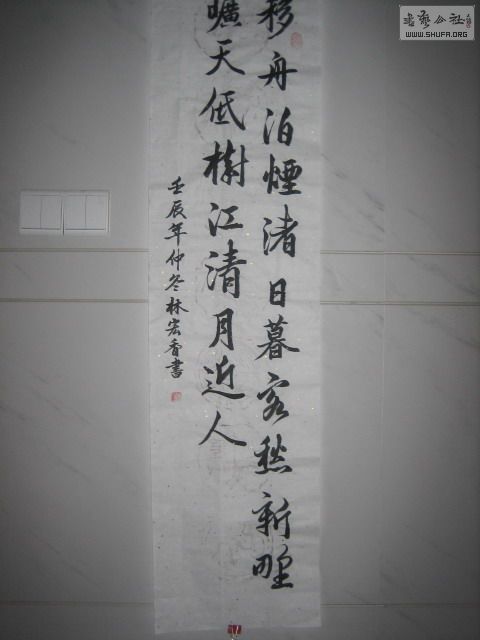 移舟泊煙渚日暮客愁新野
曠天低樹江清月近人
壬辰年仲冬林宏香書
書藝公社
WWW.SHUFA.ORG